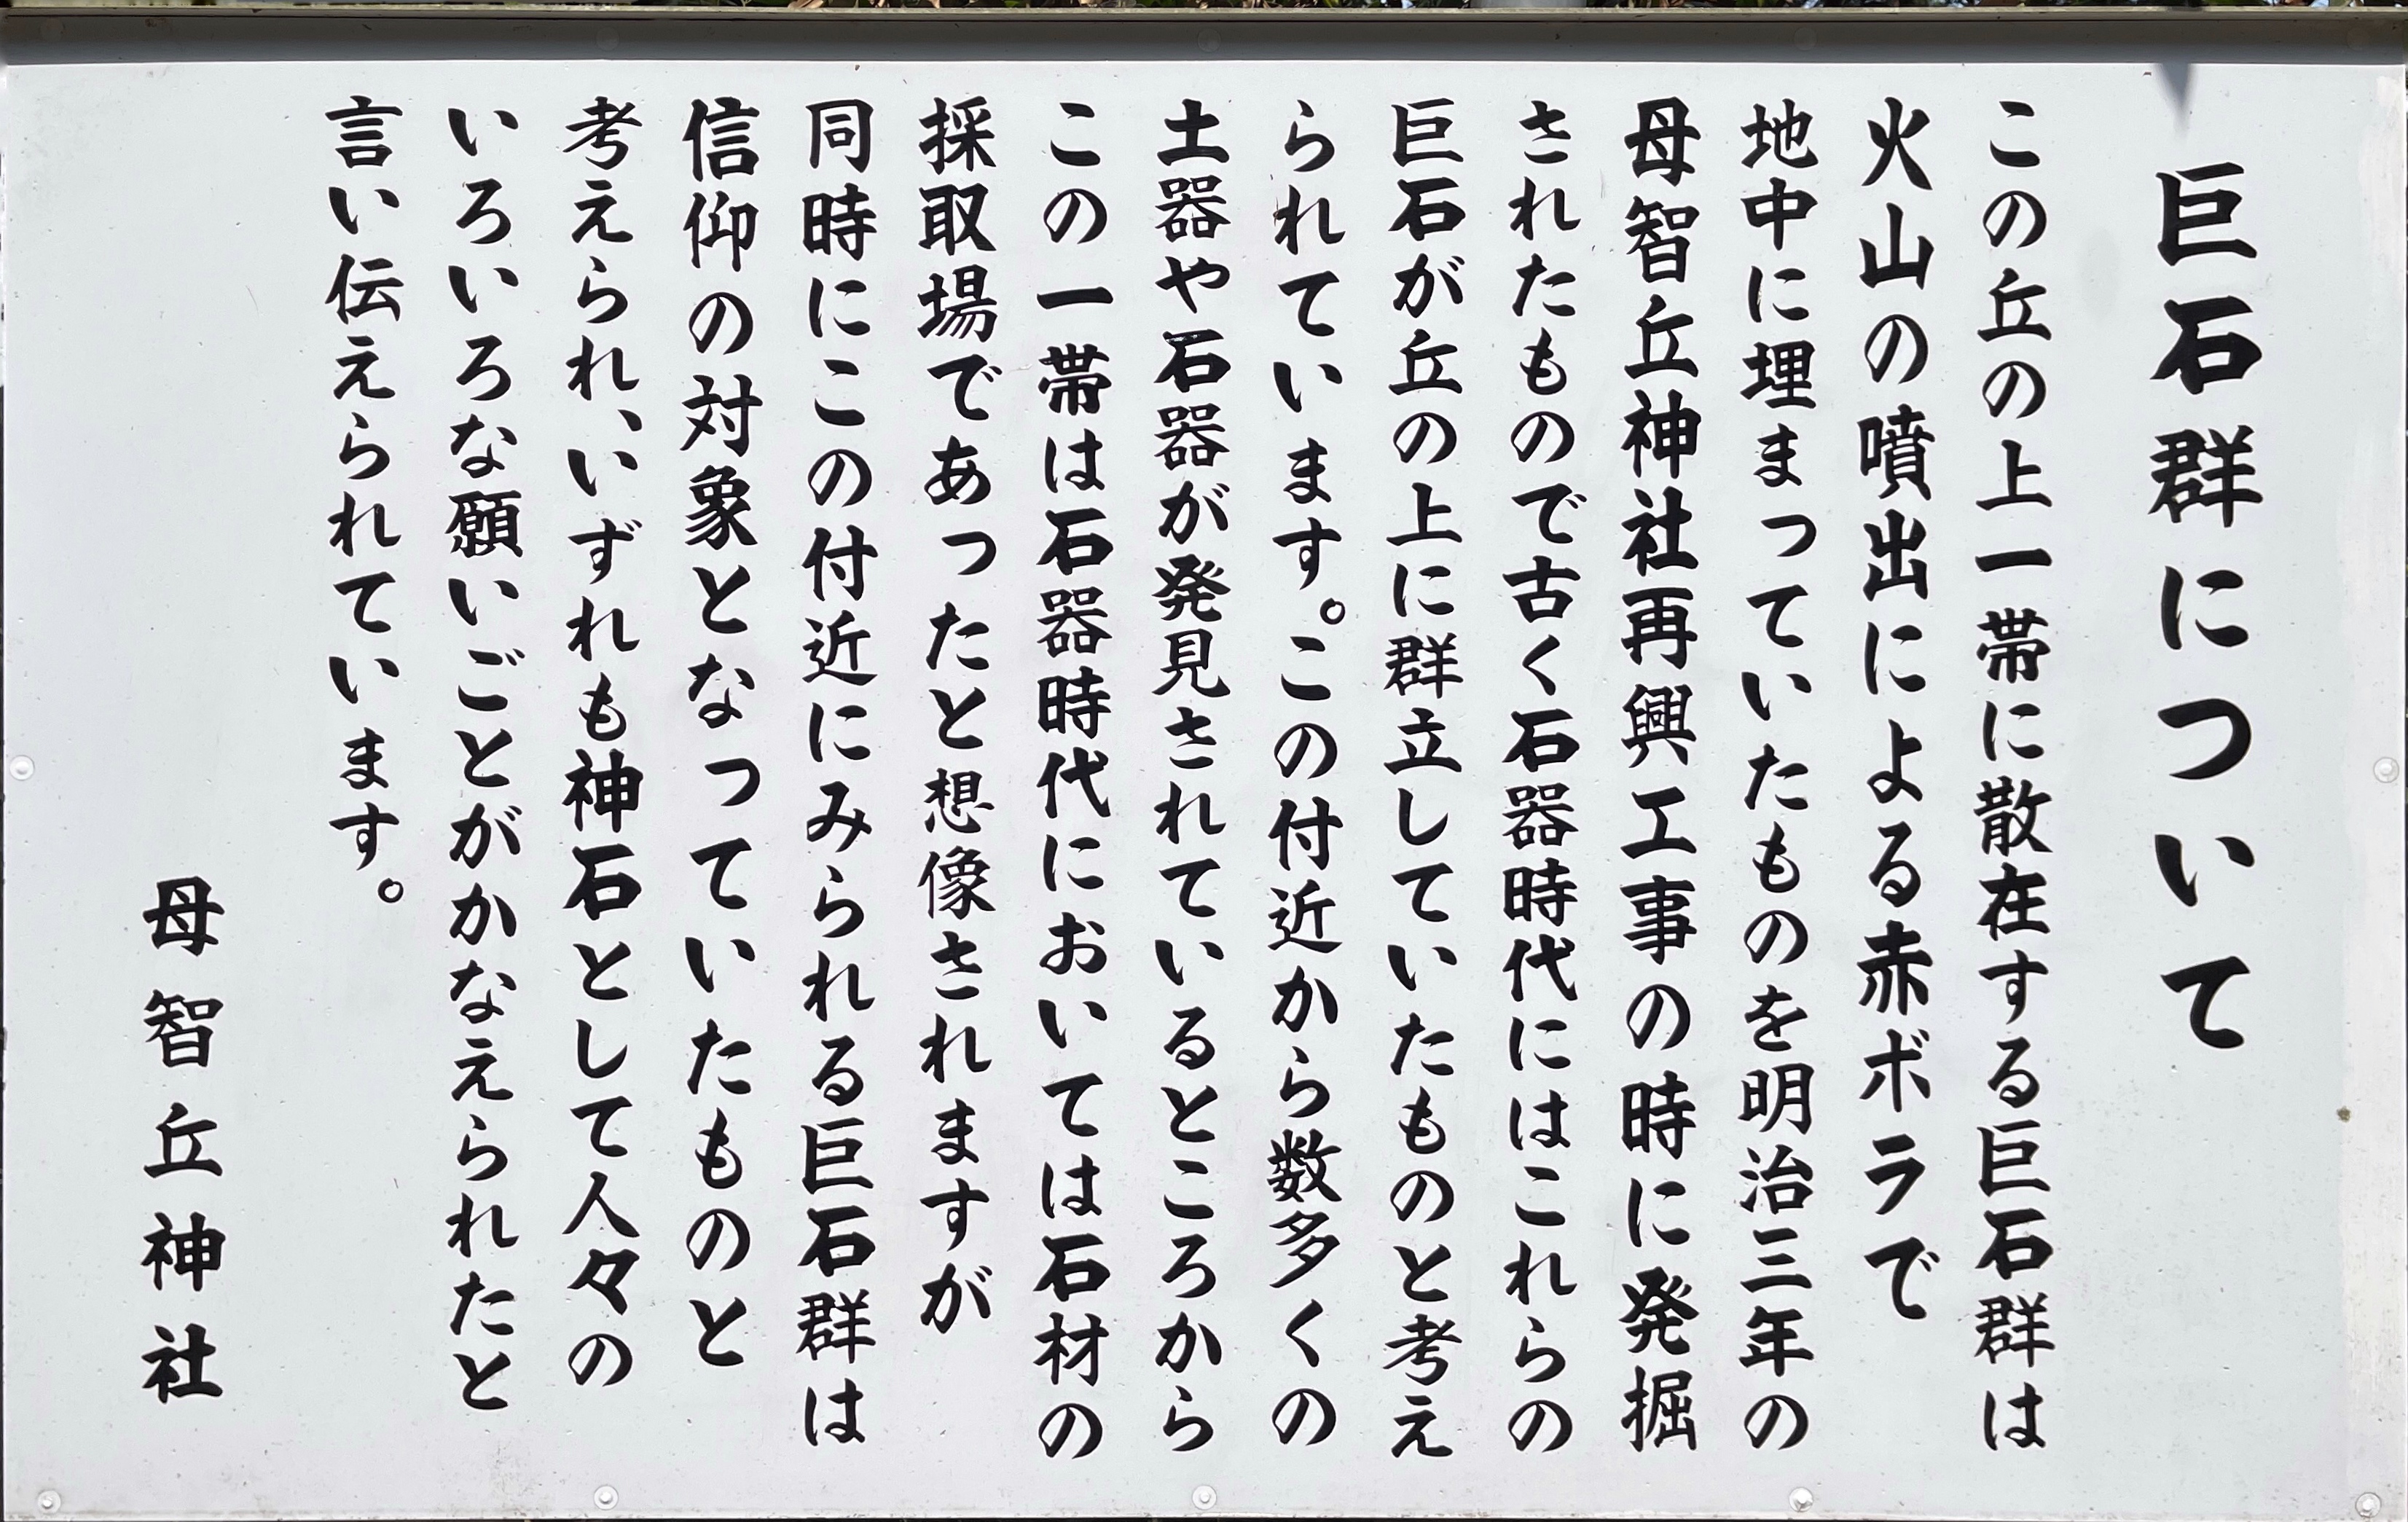 巨石群について
この丘の上一帯に散在する巨石群は
火山の噴出による赤ボラで
地中に埋まっていたものを明治三年の
母智丘神社再興工事の時に発掘
されたもので古く石器時代にはこれらの
巨石が丘の上に群立していたものと考え
られています。この付近から数多くの
土器や石器が発見されているところから
この一帯は石器時代においては石材の
採取場であったと想像されますが
同時にこの付近にみられる巨石群は
信仰の対象となっていたものと
考えられ、いずれも神石として人々の
いろいろな願いごとがかなえられたと
言い伝えられています。
母智丘神社